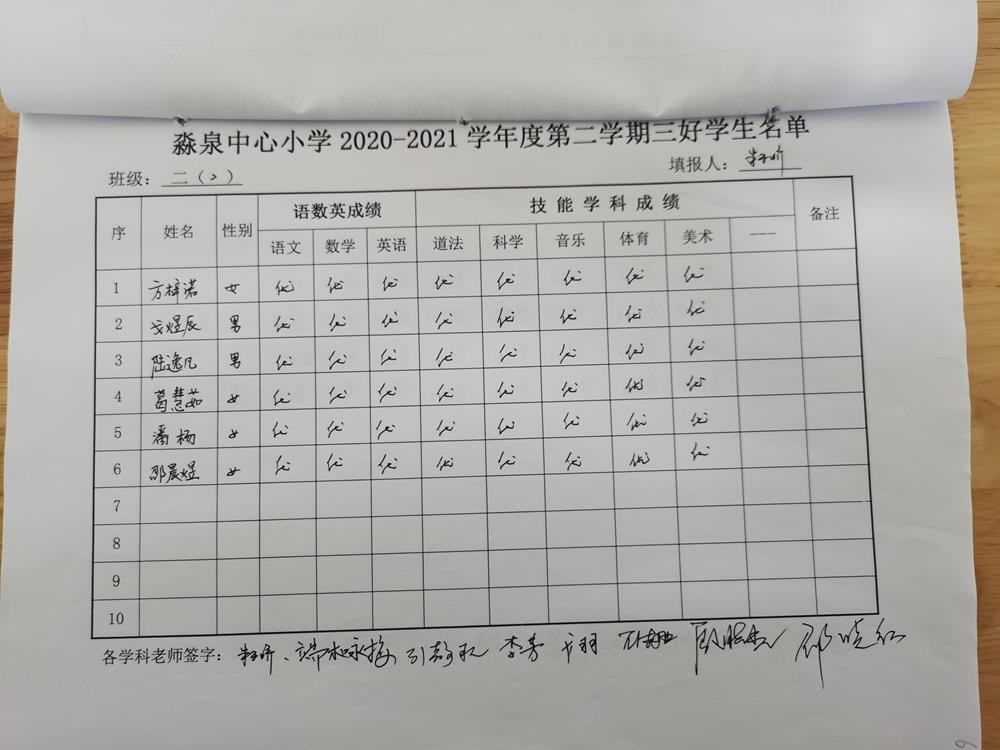 淼泉中心小学 2020-2021 学年度第二学期三好学生名单
班级：二（2） 填报人：
序 姓名 性别 语数英成绩 技能学科成绩 备注
语文 数学 英语 道法 科学 音乐 体育 美术 ---
1 方梓诺 女 优 优 优 优 优 优 优 优
2 戈煜辰 男 优 优 优 优 优 优 优 优
3 陆逸凡 男 优 优 优 优 优 优 优 优
4 葛慧茹 女 优 优 优 优 优 优 优 优
5 潘杨 女 优 优 优 优 优 优 优 优
6 邵晨煜 女 优 优 优 优 优 优 优 优
7
8
9
10
各学科老师签字： 李芳 邵晓红